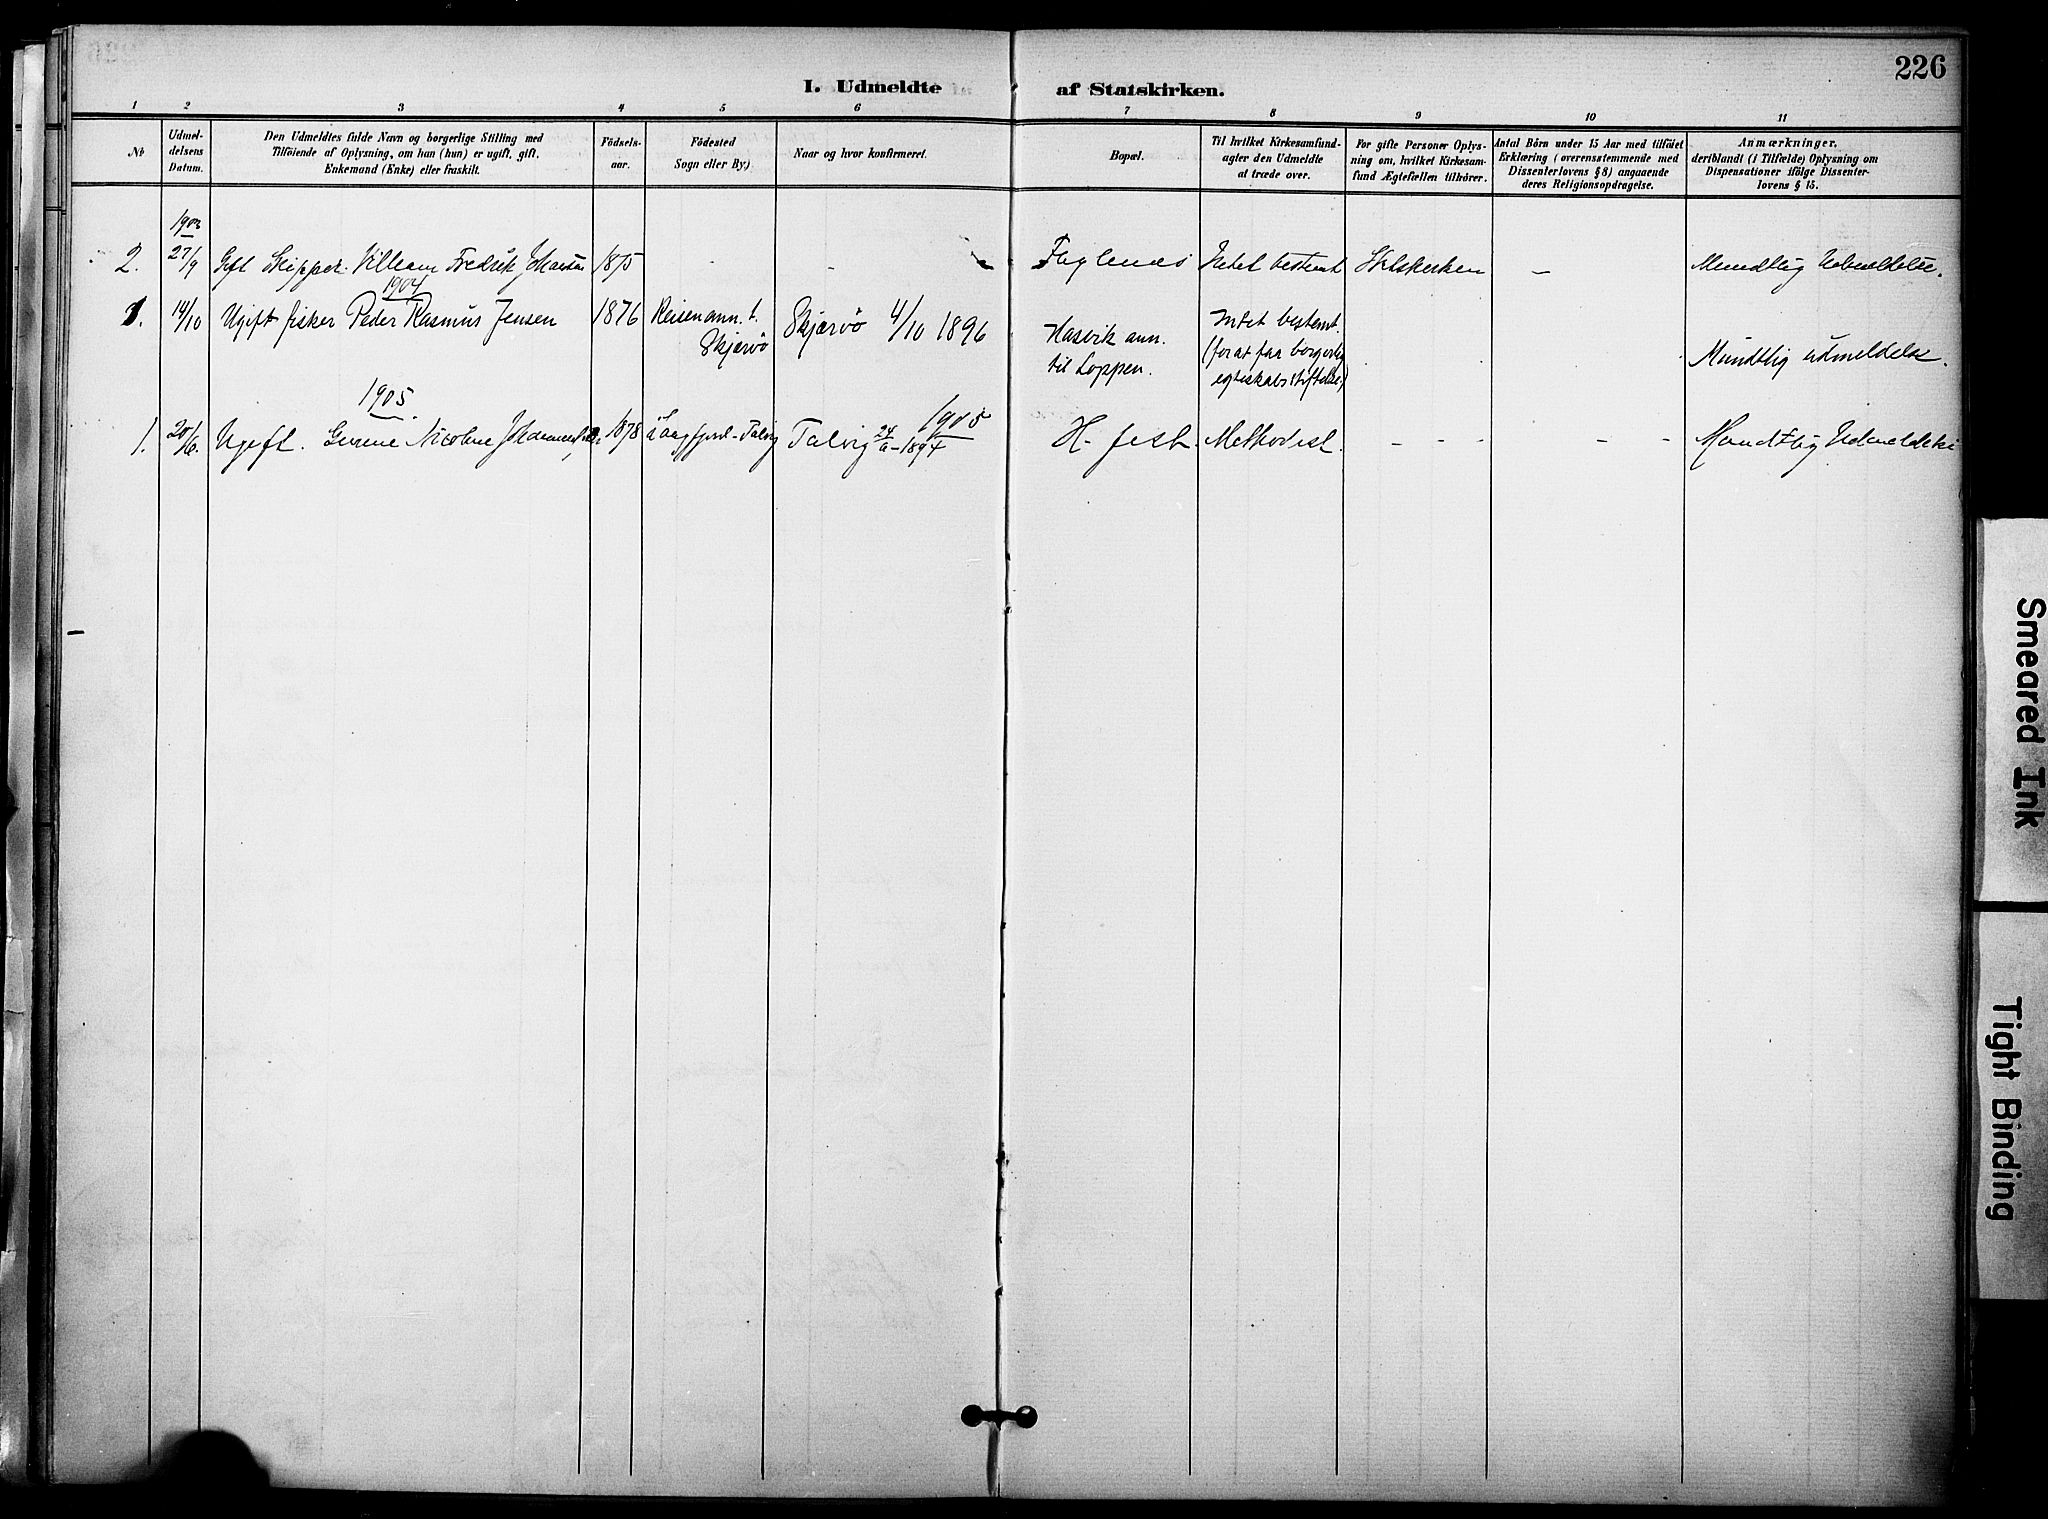 226
I. Udmeldte af Statskirken.
1 2 3 4 5 6 7 8 9 10 11
No
Udmel-
delsens
Datum.
Den Udmeldtes fulde Navn og borgerlige Stilling med
Tilföiende af Oplysning, om han (hun) er ugift, gift,
Enkemand (Enke) eller fraskilt.
Födsels-
aar.
Födested
Sogn eller By.)
Naar og hvor konfirmeret.
Bopæl.
Til hvilket Kirkesamfund
agter den Udmeldte
at træde over.
For gifte Personer Oplys-
ning om, hvilket Kirkesam-
fund Ægtefællen tilhörer.
Antal Börn under 15 Aar med tilföiet
Erklæring (overensstemmende med
Dissenterlovens § 8) angaaende
deres Religionsopdragelse.
Anmærkninger,
deriblandt (i Tilfælde) Oplysning om
Dispensationer ifölge Dissenter-
lovens § 15.
2. 27/9 Gift Skipper Villiam Fredrik 1875 - - Fuglenes Intet bestemt Statskirken — Mundtlig Udmeldelse.
1904
1. 14/10 Ugift fisker Peder Rasmus Jensen 1876 Reisen ann. t.
Skjærvö
Skjærvö 4/10 1896
Hasvik ann.
til Loppen.
Intet bestemt.
(for at faa borgerlig
egteskabsstiftelse)
Mundtlig udmeldelse.
1905
1905
1. 20/6. Ugift. Nicoline 1878 Talvig Talvig 24/6-1894 H-fest. Methodist. - - - - - Mundtlig Udmeldelse
Smeared Ink
Tight Binding